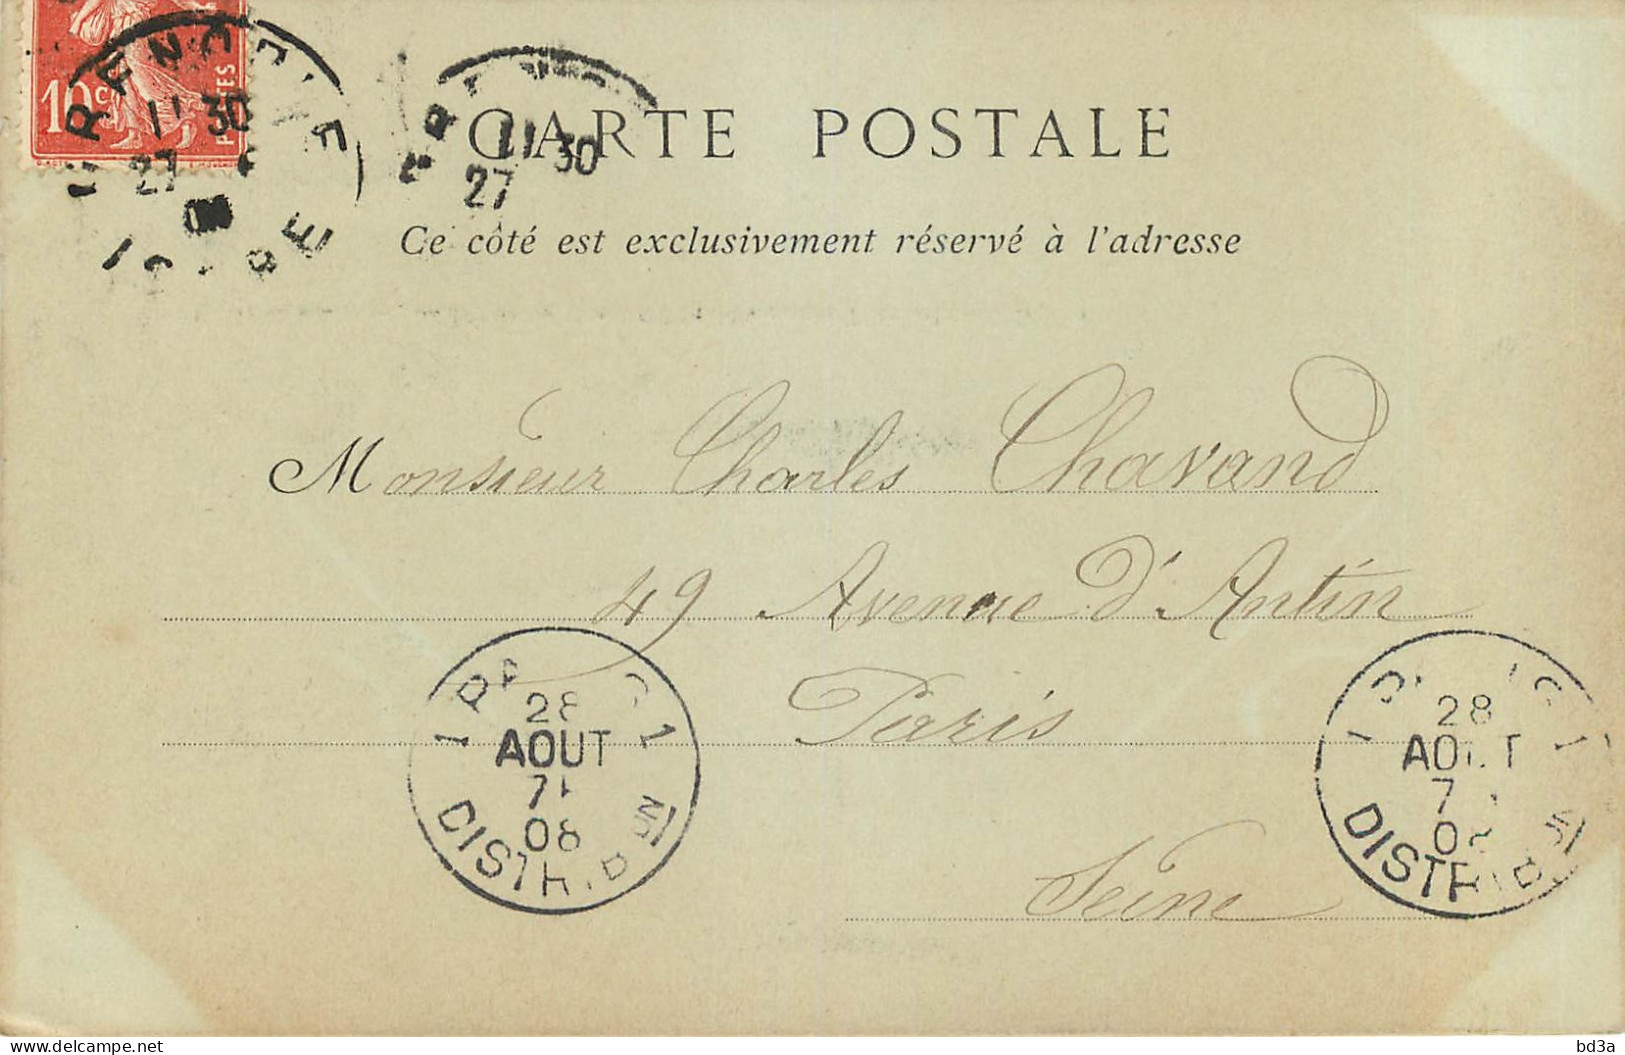 10c
POSTES
GRENOBLE
11 30
27
ISERE
11 30
27
CARTE POSTALE
Ce côté est exclusivement réservé à l'adresse
Monsieur Charles Chavand
49 Avenue d'Antin
Paris
Seine
28
AOUT
7
08
DISTRIB
28
AOUT
7
DISTRIB
delcampe.net
bd3a